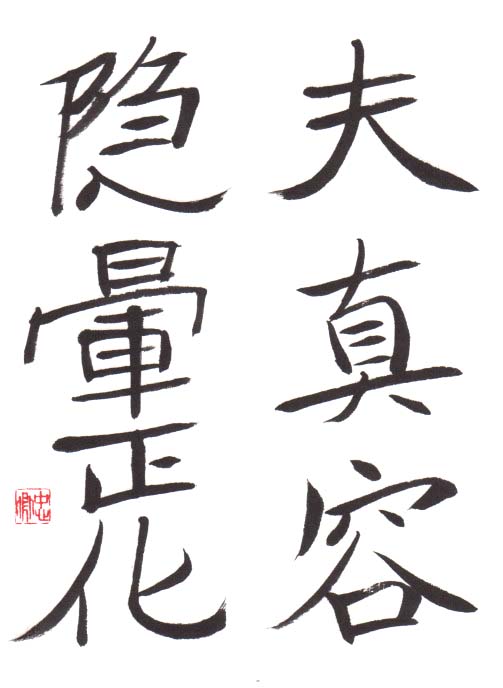 夫真容
隐暈正化